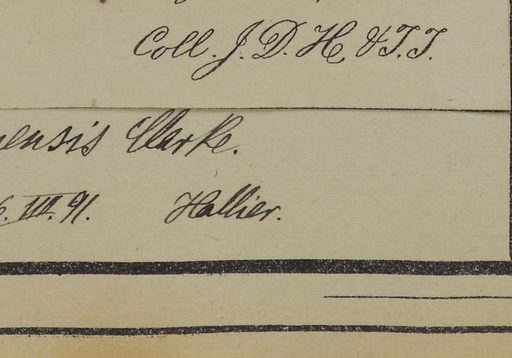 Coll. J. D. H. & T. T.
ensis Clarke.
III. 91. Hallier.